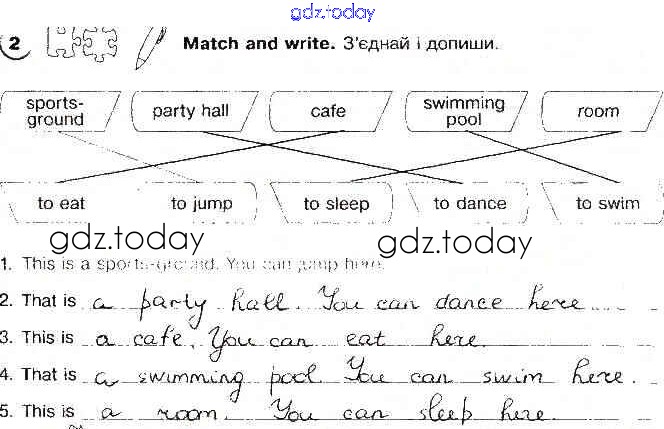 gdz.today
2 Match and write. З'єднай і допиши.
sports-
ground
party hall
cafe
swimming
pool
room
to eat
to jump
to sleep
to dance
to swim
gdz.today gdz.today
1. This is a sports-ground. You can jump here.
2. That is a party hall. You can dance here
3. This is a cafe. You can eat here.
4. That is a swimming pool. You can swim here.
5. This is a room. You can sleep here.